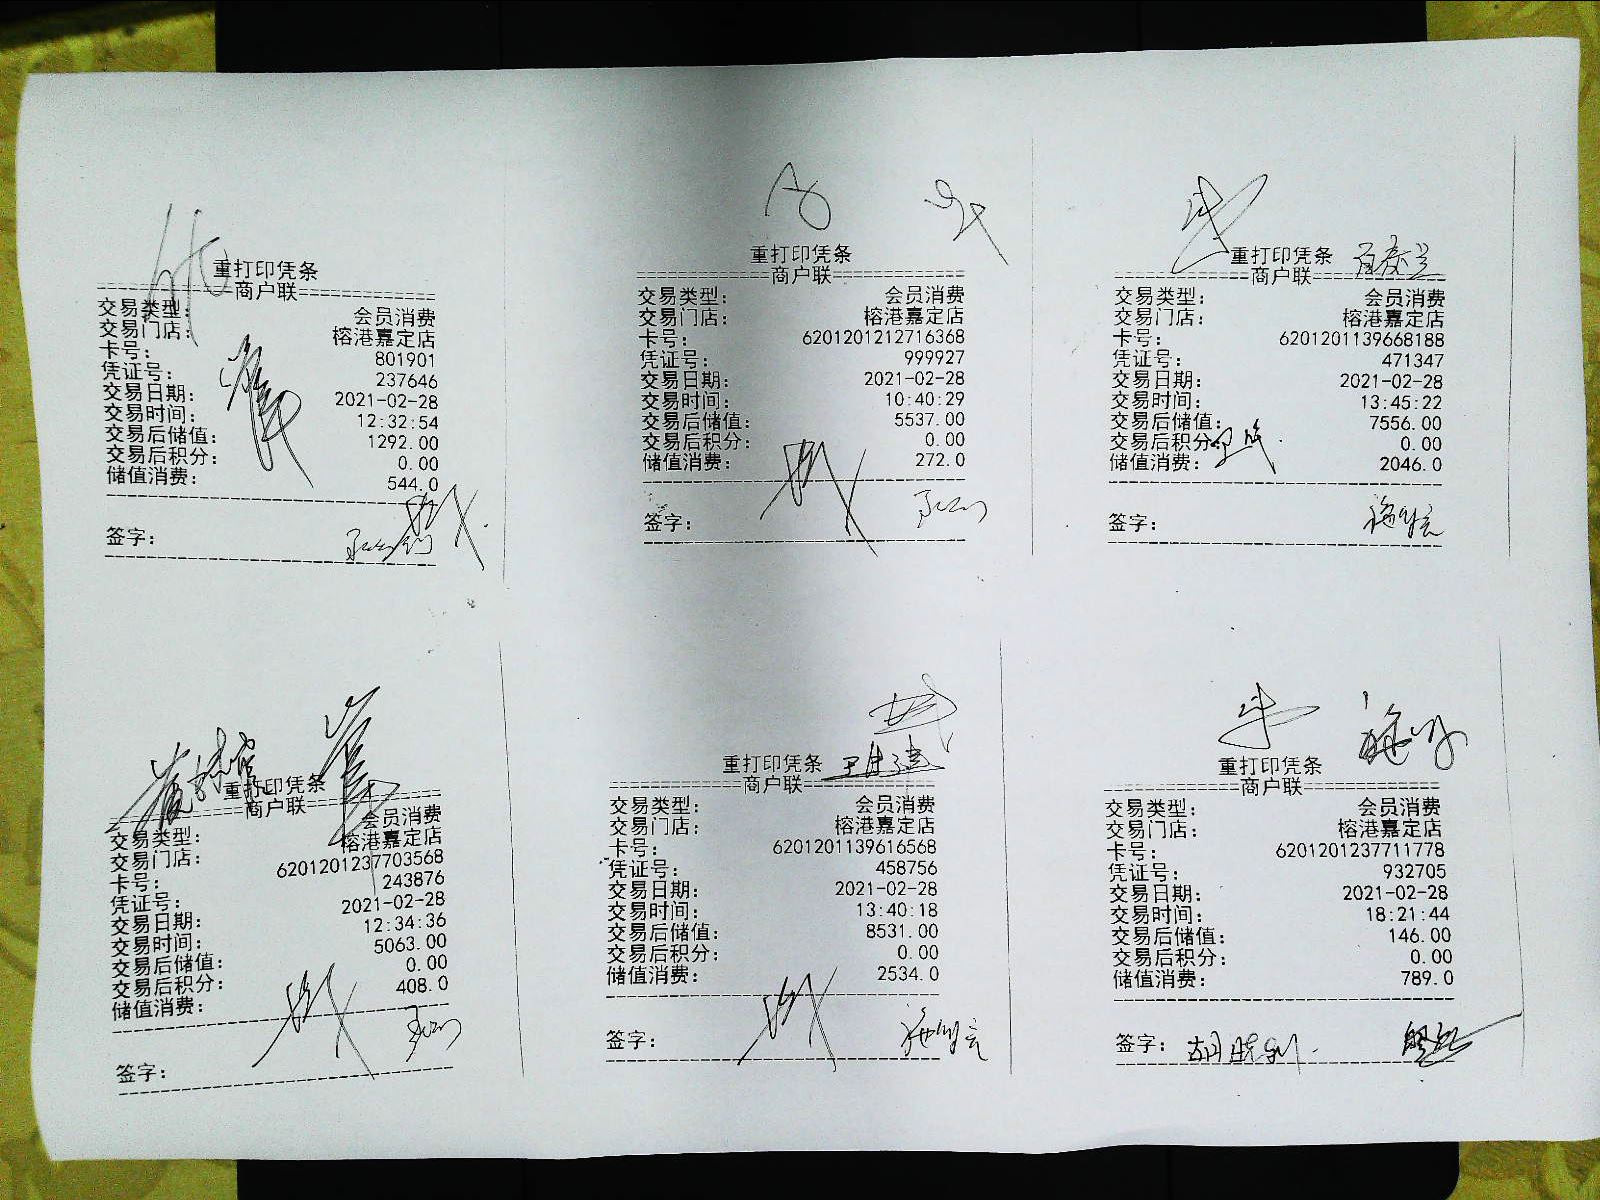 重打印凭条
商户联
交易类型： 会员消费
交易门店： 榕港嘉定店
卡号： 801901
凭证号： 237646
交易日期： 2021-02-28
交易时间： 12:32:54
交易后储值： 1292.00
交易后积分： 0.00
储值消费： 544.0
签字：
重打印凭条
商户联
交易类型： 会员消费
交易门店： 榕港嘉定店
卡号： 6201201212716368
凭证号： 999927
交易日期： 2021-02-28
交易时间： 10:40:29
交易后储值： 5537.00
交易后积分： 0.00
储值消费： 272.0
签字：
重打印凭条
商户联
交易类型： 会员消费
交易门店： 榕港嘉定店
卡号： 6201201139668188
凭证号： 471347
交易日期： 2021-02-28
交易时间： 13:45:22
交易后储值： 7556.00
交易后积分： 0.00
储值消费： 2046.0
签字：
重打印凭条
商户联
交易类型： 会员消费
交易门店： 榕港嘉定店
卡号： 6201201237703568
凭证号： 243876
交易日期： 2021-02-28
交易时间： 12:34:36
交易后储值： 5063.00
交易后积分： 0.00
储值消费： 408.0
签字：
重打印凭条
商户联
交易类型： 会员消费
交易门店： 榕港嘉定店
卡号： 6201201139616568
凭证号： 458756
交易日期： 2021-02-28
交易时间： 13:40:18
交易后储值： 8531.00
交易后积分： 0.00
储值消费： 2534.0
签字：
重打印凭条
商户联
交易类型： 会员消费
交易门店： 榕港嘉定店
卡号： 6201201237711778
凭证号： 932705
交易日期： 2021-02-28
交易时间： 18:21:44
交易后储值： 146.00
交易后积分： 0.00
储值消费： 789.0
签字：